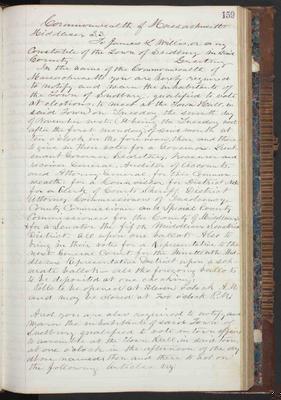 159
Commonwealth of Massachusetts
Middlesex SS.
To James L. Willis, or any
Constable of the Town of Sudbury, in said
County Greeting
In the name of the Commonwealth of
Massachusetts you are hereby required
to notify and warn the inhabitants of
the Town of Sudbury, qualified to vote
at elections, to meet at the Town Hall, in
said Town on Tuesday the seventh day
of November next, it being the Tuesday next
after the first monday of said month at
o'clock in the forenoon, then and there
to give in their votes for a Governor Lieut-
enant Governor Secretary, Treasurer and
Receiver General, Auditor of Accounts,
and Attorney General, for this Common-
wealth, for a Councillor for District
for a Clerk of Courts, Sheriff, District
Attorney, Commissioners of Insolvency,
County Commissioner and Special County
Commissioners for the County of Middlesex
for a Senator the fifth Middlesex Senatorial
District. All upon one ballot. Also to
bring in their votes for a Representative to the
next General Court, for the Middlesex
Representative District upon a sep-
arate ballot. All the foregoing ballots to
be deposited at one checking.
Polls to be opened at o'clock A.M.
and may be closed at two o'clock P.M.
And you are also required to notify and
warn the inhabitants of said Town of
Sudbury qualified to vote in town affairs
to assemble at the Town Hall, in said town
at one o'clock in the afternoon of the day
above named then and there to act on
the following Articles viz.